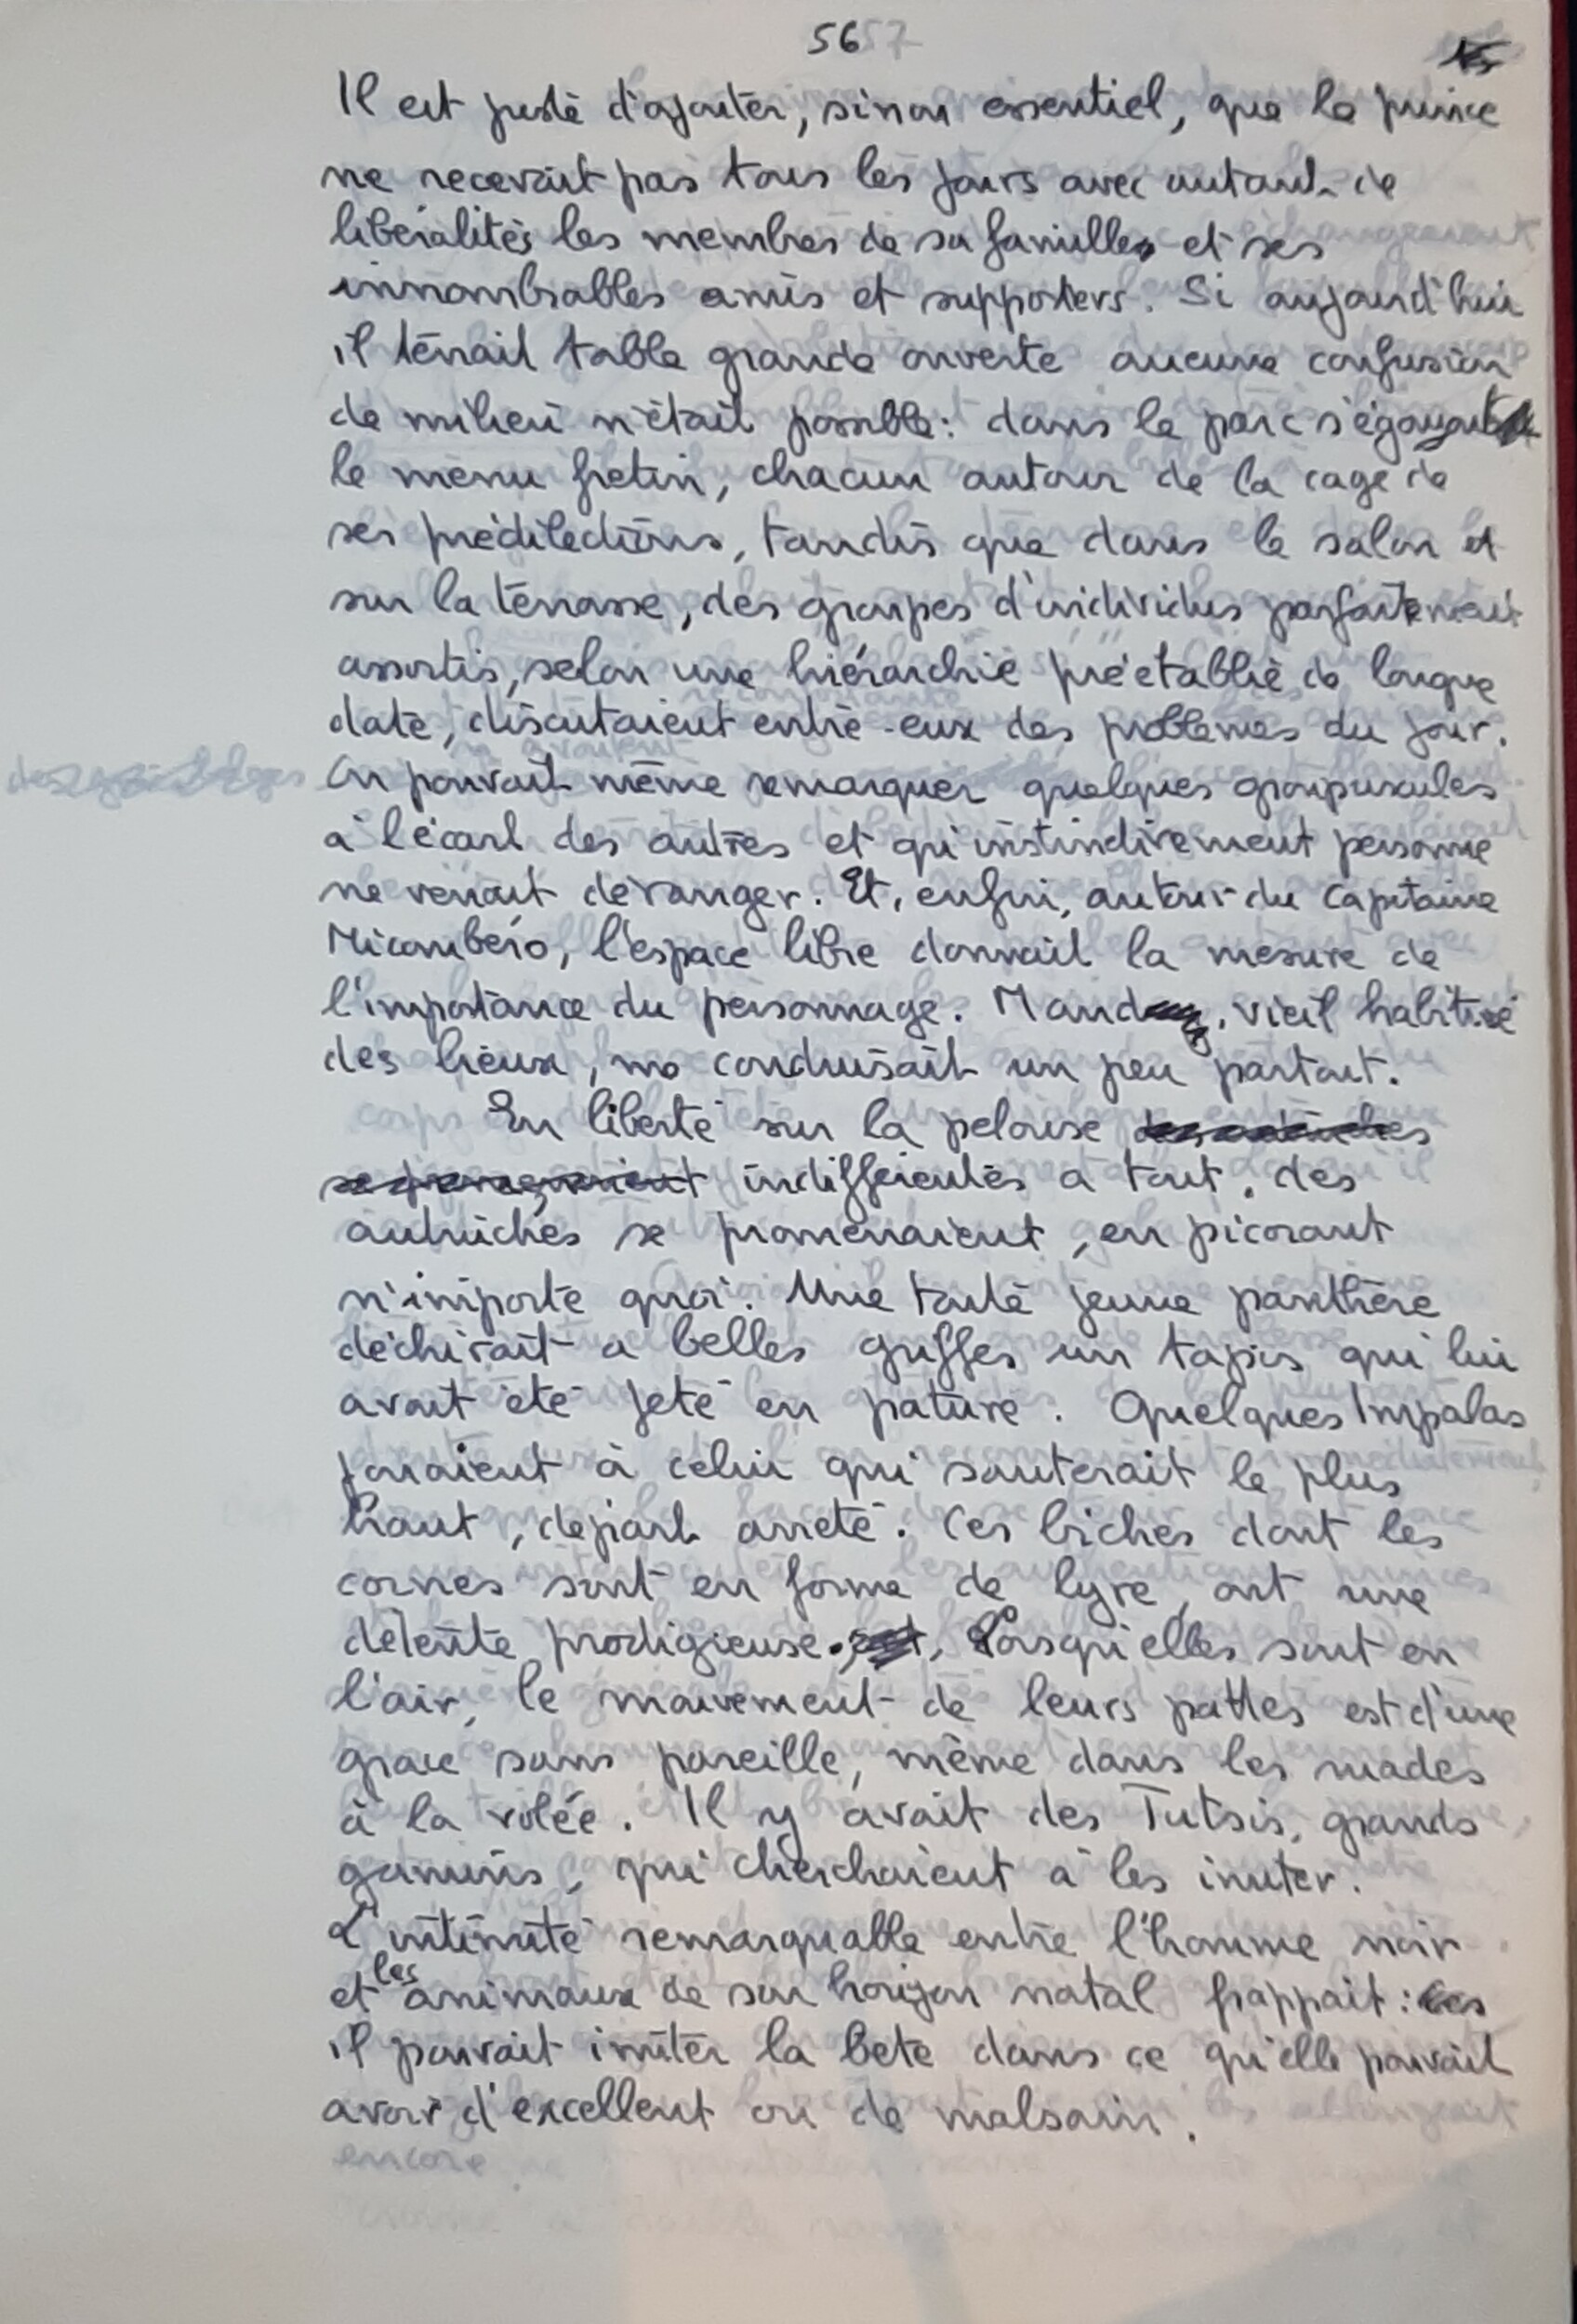 56
Il est juste d'ajouter, sinon essentiel, que le prince
ne recevait pas tous les jours avec autant de
libéralités les membres de sa famille et ses
innombrables amis et supporters. Si aujourd'hui
il tenait table grande ouverte aucune confusion
de milieu n'était possible : dans le parc s'égayait
le menu fretin, chacun autour de la cage de
ses prédilections, tandis que dans le salon et
sur la terrasse, des groupes d'individus parfaitement
assortis, selon une hiérarchie préétablie de longue
date, discutaient entre-eux des problèmes du jour.
On pouvait même remarquer quelques groupuscules
à l'écart des autres et qu'instinctivement personne
ne venait déranger. Et, enfin, autour du Capitaine
Micombéro, l'espace libre donnait la mesure de
l'importance du personnage. Mand, vieil habitué
des lieux, me conduisait un peu partout.
En liberté sur la pelouse
indifférentes a tout, des
autruches se promenaient, en picorant
n'importe quoi. Une toute jeune panthère
déchirait a belles griffes un tapis qui lui
avait été jeté en pature. Quelques Impalas
jouaient à celui qui sauterait le plus
haut, départ arreté. Ces biches dont les
cornes sont en forme de lyre, ont une
détente prodigieuse. Lorsqu'elles sont en
l'air, le mouvement de leurs pattes est d'une
grace sans pareille, même dans les ruades
à la volée. Il y avait des Tutsis, grands
gamins, qui cherchaient à les imiter.
L'intimité remarquable entre l'homme noir
et les animaux de son horizon natal frappait :
il pouvait imiter la bete dans ce qu'elle pouvait
avoir d'excellent ou de malsain.